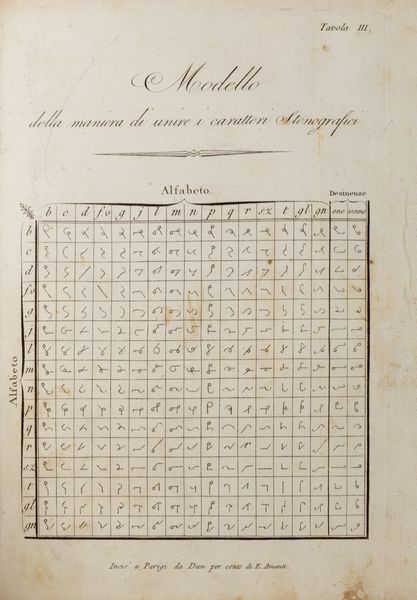 Tavola III.
Modello
della maniera di unire i caratteri Stenografici
Alfabeto
Desinenze
b c d f.v g j l m n p q r s.z t gl gn one issimo
b
c
d
f.v
g
j
l
m
n
p
q
r
s.z
t
gl
gn
Alfabeto
Incis a Parigi da Dien per conto di E. Amanti.